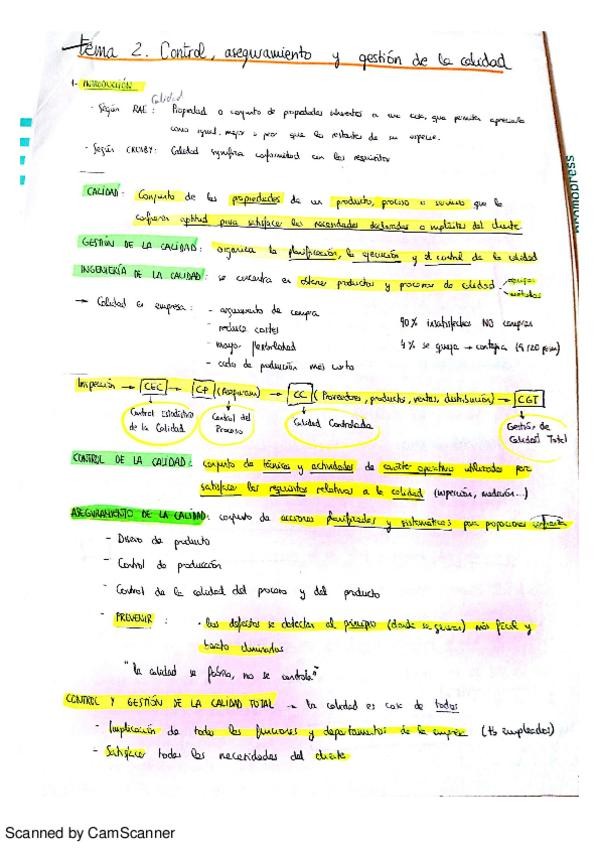 tema 2. Control, aseguramiento y gestión de la calidad
1- INTRODUCCIÓN
Calidad
- Según RAE: Propiedad o conjunto de propiedades inherentes a una cosa, que permiten apreciarla
como igual, mejor o peor que las restantes de su especie.
- Según CROSBY: Calidad significa conformidad con los requisitos
CALIDAD: Conjunto de las propiedades de un producto, proceso o servicio que le
confieren aptitud para satisfacer las necesidades declaradas o implícitas del cliente.
GESTIÓN DE LA CALIDAD: organiza la planificación, la ejecución y el control de la calidad
INGENIERÍA DE LA CALIDAD: se concentra en obtener productos y procesos de calidad.
métodos
→ Calidad en empresa: - argumento de compra
- reduce costes
90% insatisfechos NO compran
- mayor flexibilidad
4% se queja → contagia
- ciclo de producción más corto
Inspección → CEC → CP (Aseguram) → CC (Proveedores, producto, ventas, distribución) → CGT
Control Estadístico de la Calidad
Control del Proceso
Calidad Controlada
Gestión de Calidad Total
CONTROL DE LA CALIDAD: conjunto de técnicas y actividades de carácter operativo utilizadas para
satisfacer los requisitos relativos a la calidad (inspección, medición...)
ASEGURAMIENTO DE LA CALIDAD: conjunto de acciones planificadas y sistemáticas para proporcionar confianza
- Diseño de producto
- Control de producción
- Control de la calidad del proceso y del producto
- PREVENIR: · los defectos se detectan al principio (donde se generan) más fácil y
barato eliminarlos
"la calidad se fabrica, no se controla"
CONTROL Y GESTIÓN DE LA CALIDAD TOTAL → la calidad es cosa de todos
- Implicación de todas las funciones y departamentos de la empresa (ts empleados)
- Satisfacer todas las necesidades del cliente
promopress
Scanned by CamScanner